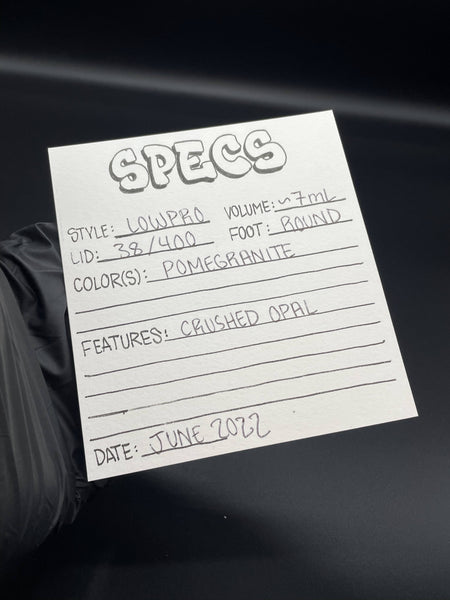 SPECS
STYLE: LOWPRO VOLUME: ~7mL
LID: 38/400 FOOT: ROUND
COLOR(S): POMEGRANITE
FEATURES: CRUSHED OPAL
DATE: JUNE 2022